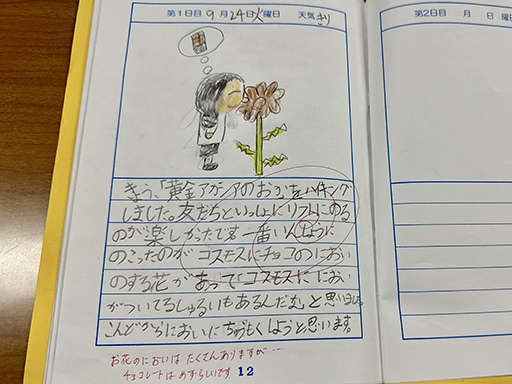 第1日目 9月 24日 火曜日 天気 きり
第2日目 月 日 曜
きょう、「黄金アカシアのおかをハイキング
しました。友だちといっしょにリフトにのる
のが楽しかったです。一番いんしょうに
のこったのがコスモスにチョコのにおい
のする花があってコスモスににおい
がついてるしゅるいもあるんだな」と思いました。
こんどからにおいにちゅうもくしようと思います。
お花のにおいは たくさんありますが…
チョコレートは めずらしいです
12